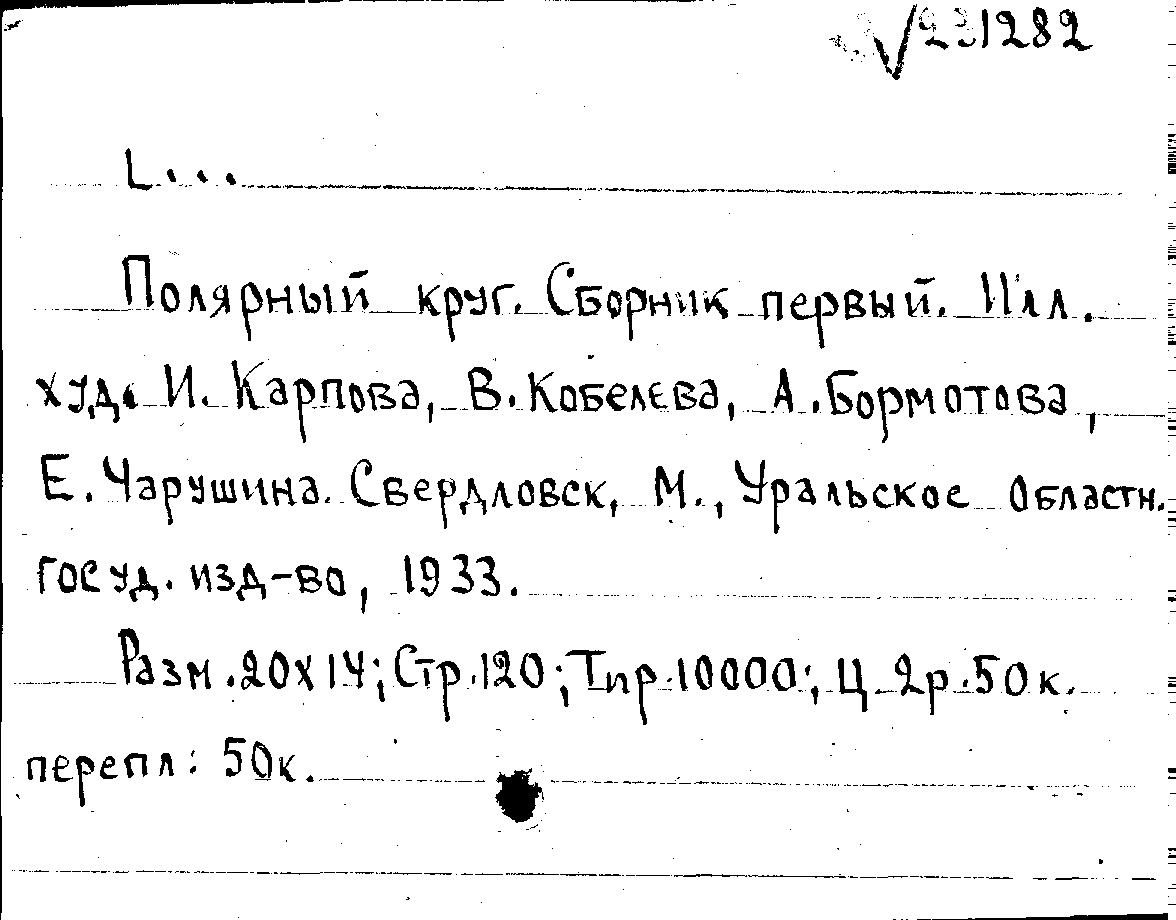 √231282
L...
Полярный круг. Сборник первый. Илл.
худ. И. Карпова, В. Кобелева, А. Бормотова,
Е. Чарушина. Свердловск, М., Уральское областн.
госуд. изд-во, 1933.
Разм. 20х14; Стр. 120; Тир. 10000; Ц 2р. 50к.
перепл: 50к.